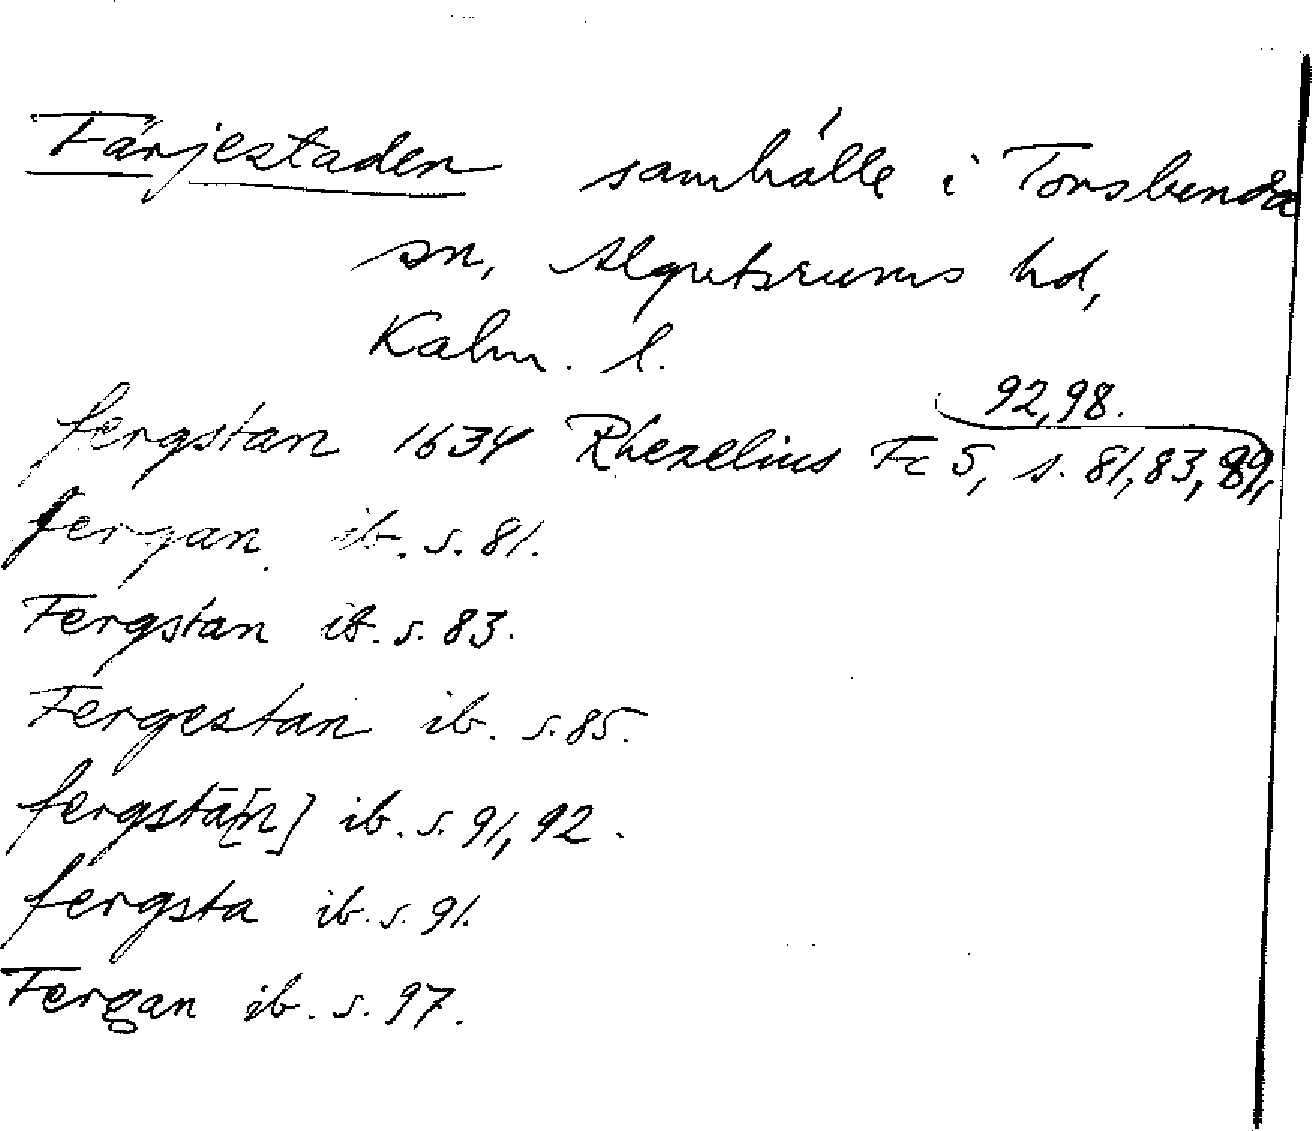 Färjestaden samhälle i Torslunda
sn, Algutsrums hd,
Kalm. l.
fergstan 1634 Rhezelius Fc 5, s. 81, 83, 89, 92, 98.
fergan ib. s. 81.
Fergstan ib. s. 83.
Fergestan ib. s. 85.
fergsta[n] ib. s. 91, 92.
fergsta ib. s. 91.
Fergan ib. s. 97.